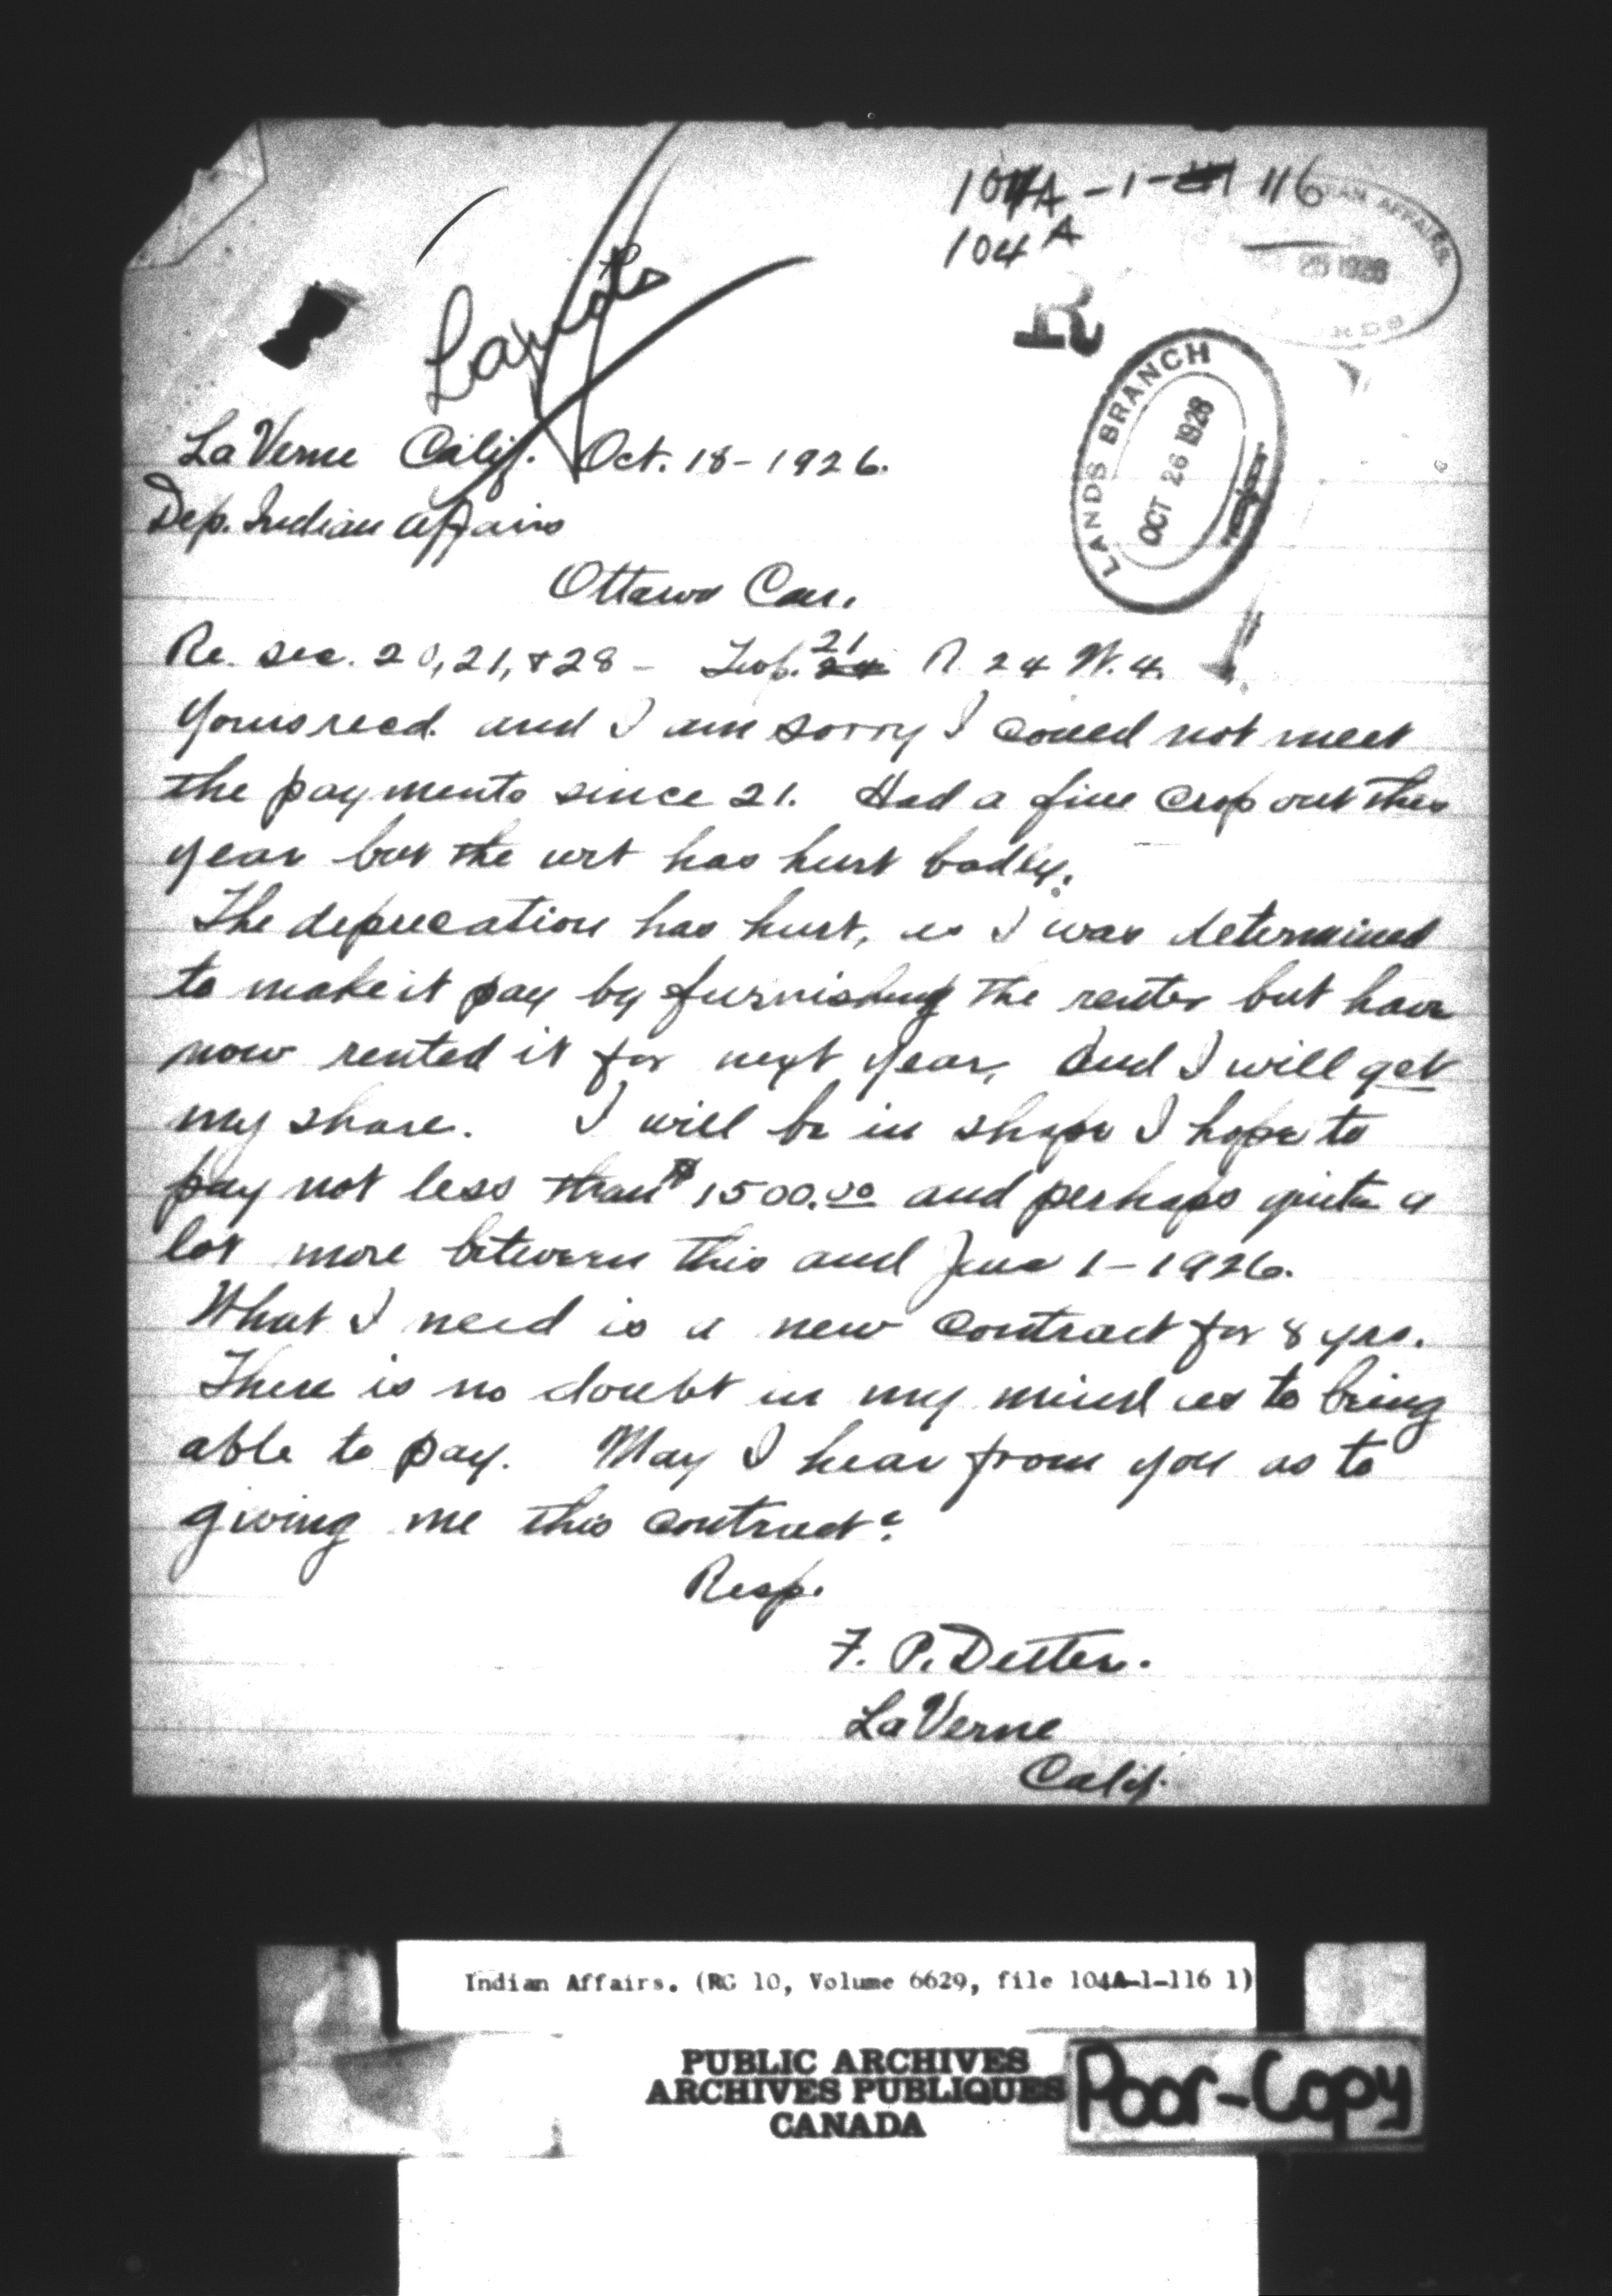 104A-1- 116
104 A
INDIAN AFFAIRS
26 1926
R
Lands
LANDS BRANCH
OCT 26 1926
La Verne Calif. Oct. 18-1926.
Dep. Indian Affairs
Ottawa Can.
Re. sec. 20, 21, & 28 - Twp. 21 R. 24 W. 4.
Yours recd. and I am sorry I could not meet
the payments since 21. Had a fine crop out this
year but the wet has hurt badly.
The deprecation has hurt, as I was determined
to make it pay by furnishing the renter but have
now rented it for next year, and I will get
my share. I will be in shape I hope to
pay not less than $1500.00 and perhaps quite a
lot more between this and June 1-1926.
What I need is a new contract for 8 yrs.
There is no doubt in my mind as to being
able to pay. May I hear from you as to
giving me this contract?
Resp.
F. P. Detter.
La Verne
Calif.
Indian Affairs. (RG 10, Volume 6629, file 104A-1-116 1)
PUBLIC ARCHIVES
ARCHIVES PUBLIQUES
CANADA
Poor-Copy